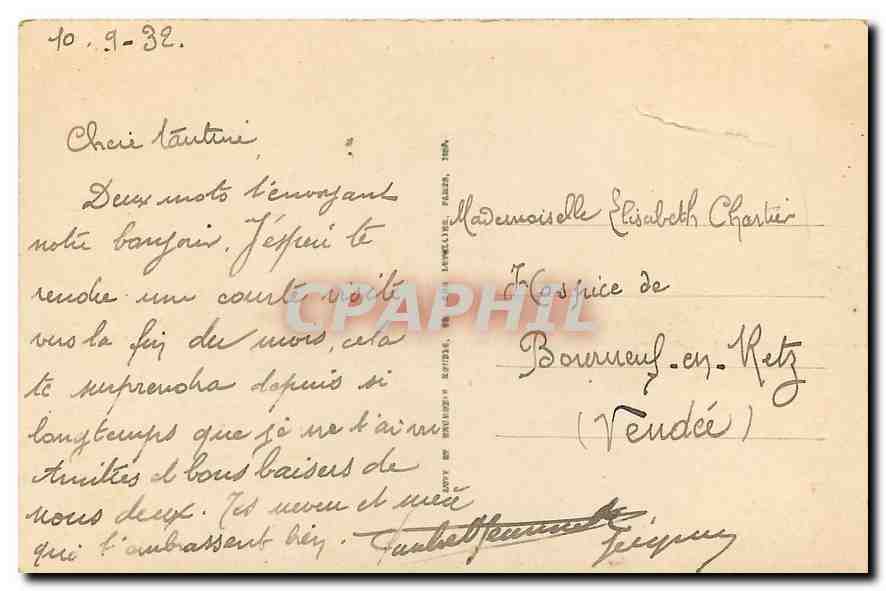 10.9-32.
Chère tantine,
Deux mots t'envoyant
notre bonjour. J'espère te
rendre une courte visite
vers la fin du mois, cela
te surprendra depuis si
longtemps que je ne t'ai vu
Amitiés et bons baisers de
nous deux. Tes neveu et nièce
qui t'embrassent bien.
Mademoiselle Elisabeth Chartier
Hospice de
Bourneuf-en-Retz
(Vendée)
CPAPHIL